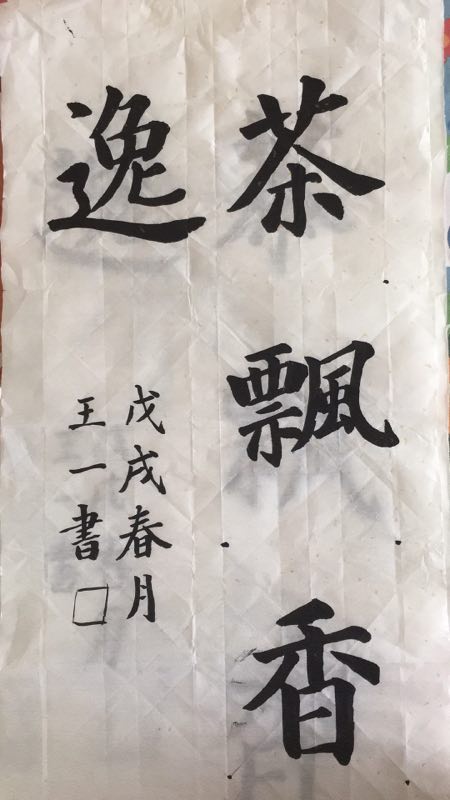 茶飄香
逸
戊戌春月
王一書